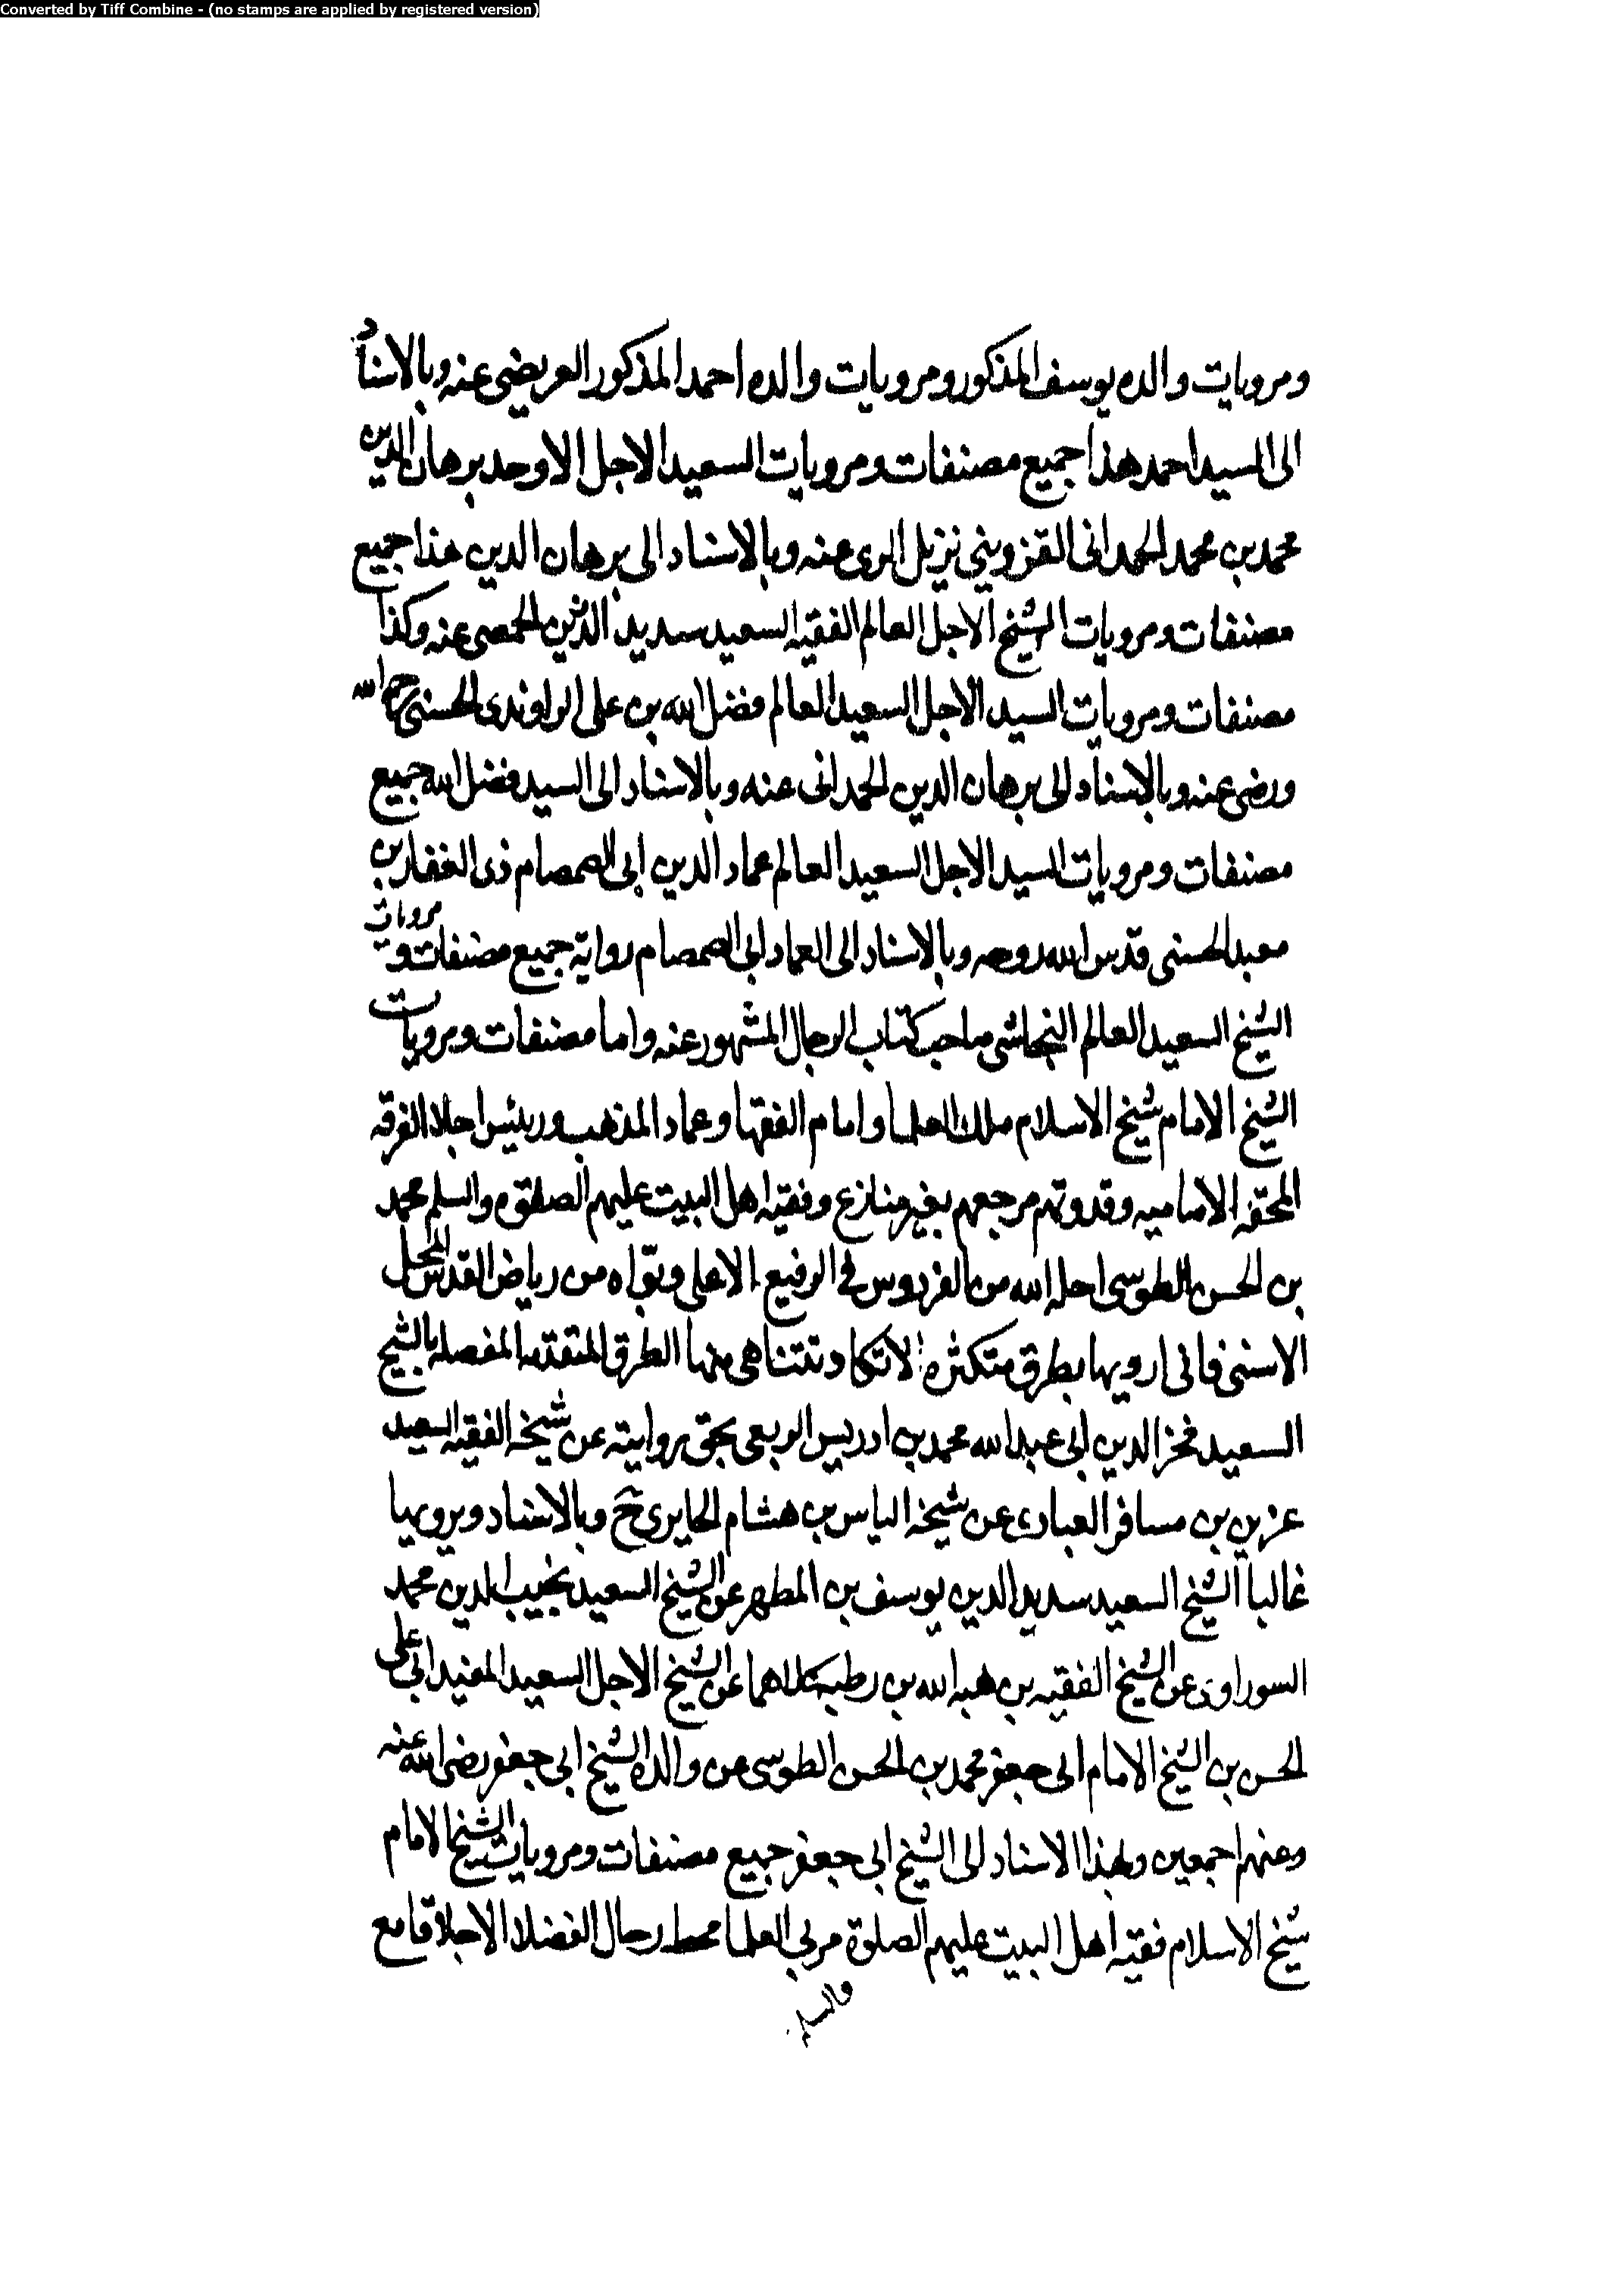 Converted by Tiff Combine - (no stamps are applied by registered version)
ومرويات والده يوسف المذكور ومرويات والده احمد المذكور العريضى عنه وبالاسناد
الى السيد احمد هذا جميع مصنفات ومرويات السعيد الاجل الاوحد برهان الدين
محمد بن محمد الحمدانى القزوينى نزيل الرى عنه وبالاسناد الى برهان الدين هذا جميع
مصنفات ومرويات الشيخ الاجل العالم الفقيه السعيد سديد الدين الحمصى عنه وكذا
مصنفات ومرويات السيد الاجل السعيد العالم فضل الله بن على الراوندى الحسنى رحمه الله
ورضى عنه وبالاسناد الى برهان الدين الحمدانى عنه وبالاسناد الى السيد فضل الله جميع
مصنفات ومرويات السيد الاجل السعيد العالم عماد الدين ابى الصمصام ذى الفقار بن
معبد الحسنى قدس الله روحه وبالاسناد الى العماد ابى الصمصام رواية جميع مصنفات و مرويات
الشيخ السعيد العالم النجاشى صاحب كتاب الرجال المشهور عنه واما مصنفات ومرويات
الشيخ الامام شيخ الاسلام ملك العلما وامام الفقها وعماد المذهب ورئيس اجلاء الفرقه
المحقه الاماميه وقدوتهم مرجعهم بغير منازع وفقيه اهل البيت عليهم الصلوة والسلم محمد
بن الحسن الطوسى احله الله من الفردوس فى الرفيع الاعلى وبوّاه من رياض القدس المحل
الاسنى فانى ارويها بطرق متكثره لا تكاد تتناهى منها الطرق المتقدمه المفصله بالشيخ
السعيد فخر الدين ابى عبد الله محمد بن ادريس الربعى بحق روايته عن شيخه الفقيه السعيد
عربى بن مسافر العبادى عن شيخه الياس بن هشام الحايرى ح وبالاسناد ويرويها
غالبا الشيخ السعيد سديد الدين يوسف بن المطهر عن الشيخ السعيد نجيب الدين محمد
السوراوى عن الشيخ الفقيه بن هبه الله بن رطبه كلاهما عن الشيخ الاجل السعيد المفيد ابى على
الحسن بن الشيخ الامام ابى جعفر محمد بن الحسن الطوسى عن والده الشيخ ابى جعفر رضى الله عنه
وعنهم اجمعين وبهذا الاسناد الى الشيخ ابى جعفر جميع مصنفات ومرويات الشيخ الامام
شيخ الاسلام فقيه اهل البيت عليهم الصلوة مربى العلما محط رحال الفضلاء الاجلاء قامع
والسلم